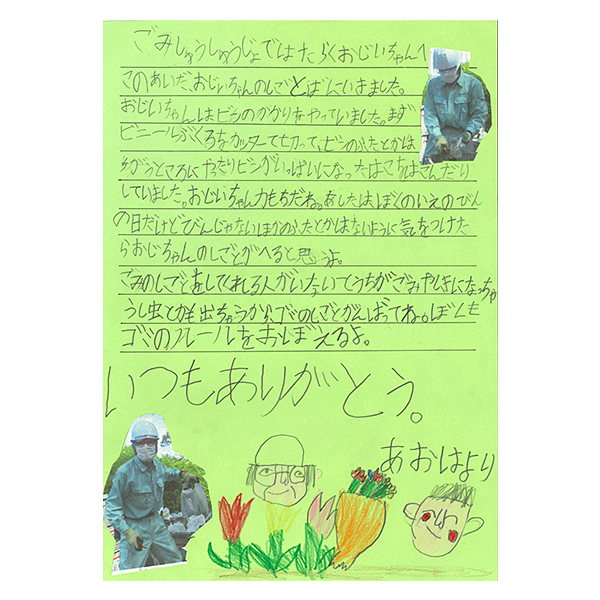 ごみしゅうしゅうじょではたらくおじいちゃんへ
このあいだ、おじいちゃんのしごとばにいきました。
おじいちゃんはビンのかかりをやっていました。まず
ビニールぶくろをカッターで切って、ビンのふたとかは
ちがうところにやったりビンがいっぱいになったはこをはこんだり
していました。おじいちゃん力もちだね。あしたはぼくのいえのびん
の日だけどびんじゃないほかのふたとかはないように気をつけた
らおじちゃんのしごとがへると思うよ。
ごみのしごとをしてくれる人がいないとうちがごみやしきになっちゃ
うし虫とかも出ちゃうから、ゴミのしごとがんばってね。ぼくも
ゴミのルールをおぼえるよ。
いつもありがとう。
あおはより